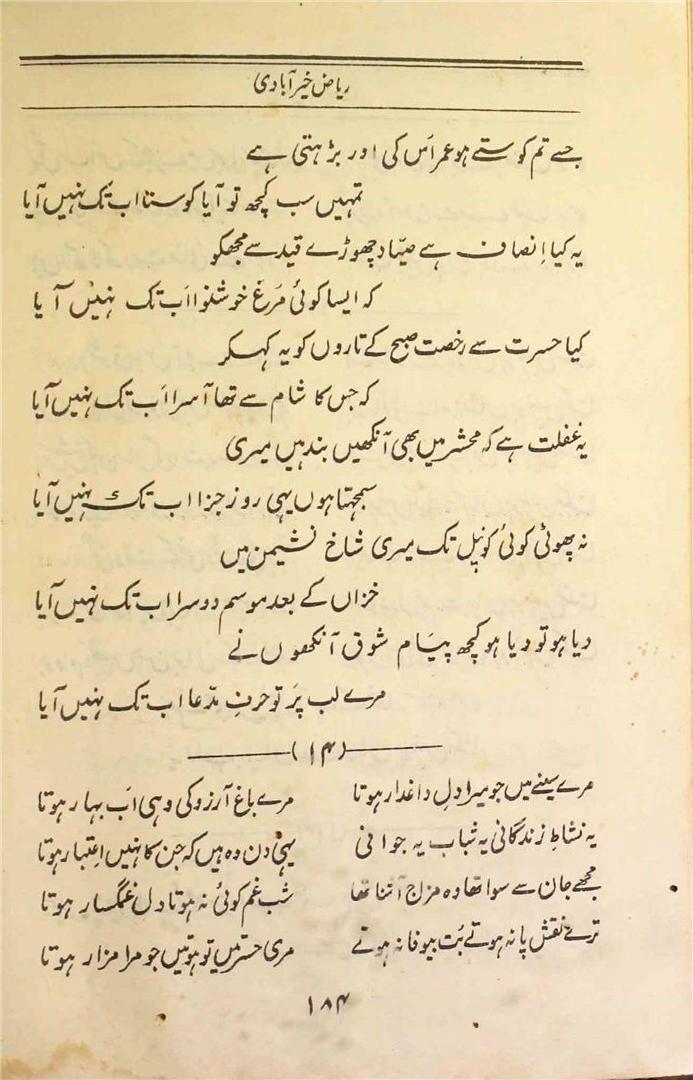 ریاض خیرآبادی
جسے تم کوستے ہو عمر اُس کی اور بڑہتی ہے
تمہیں سب کچھ تو آیا کوسنا اب تک نہیں آیا
یہ کیا اِنصاف ہے صیّاد چھوڑے قید سے مجھکو
کہ ایسا کوئی مُرغِ خوشنوا اَب تک نہیں آیا
کیا حسرت سے رخصت صبح کے تاروں کو یہ کہکر
کہ جس کا شام سے تھا آسرا اَب تک نہیں آیا
یہ غفلت ہے کہ محشر میں بھی آنکھیں بند ہیں میری
سمجہتا ہوں یہی روز جزا اب تک نہیں آیا
نہ پھوٹی کوئی کونپل تک میری شاخ نشیمن میں
خزاں کے بعد موسم دوسرا اب تک نہیں آیا
دیا ہو تو دیا ہو کچھ پیَام شوق آنکھوں نے
مرے لب پَر تو حرفِ مدّعا اب تک نہیں آیا
(۱۴)
مرے سینے میں جو میرا دلِ داغدار ہوتا مرے باغ آرزو کی وہی اَب بہار ہوتا
یہ نشاطِ زندگانی یہ شباب یہ جوانی یہی دن وہ ہیں کہ جن کا نہیں اِعتبار ہوتا
مجھے جان سے سوا تھا وہ مزاج آشنا تھا شب غم کوئی نہ ہوتا دل غمگسار ہوتا
ترے نقش پا نہ ہوتے بُت بیوفا نہ ہوتے مری حسرتیں تو ہوتیں جو مرا مزار ہوتا
۱۸۴